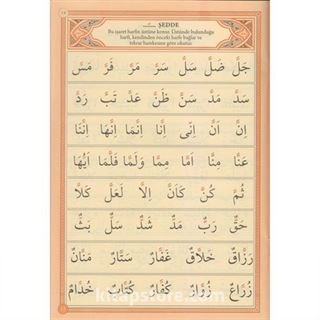 ŞEDDE
Bu işaret harfin üstüne konur. Üstünde bulunduğu
harfi, kendinden önceki harfe bağlar ve
tekrar harekesine göre okutur.
جَلَّ ضَلَّ سَلَّ سَرَّ مَرَّ فَرَّ مَسَّ
سَدَّ مَدَّ سَنَّ ظَنَّ عَدَّ تَبَّ رَدَّ
اِنَّ اَنَّ اِنّٖى اِنَّا اِنَّمَا اِنَّهَا اِنَّنَا
عَنَّا مِنَّا اَمَّا مِمَّا وَلَمَّا فَلَمَّا اَيُّهَا
ثُمَّ كُنَّ كَاَنَّ اِلَّا لَعَلَّ كَلَّا
حَقٌّ رَبٌّ مَدٌّ شَدٌّ سَلٌّ بَثٌّ
رَزَّاقٌ خَلَّاقٌ غَفَّارٌ سَتَّارٌ مَنَّانٌ
زُرَّاعٌ زُوَّارٌ كُفَّارٌ كُتَّابٌ خُدَّامٌ
kitapstore.com